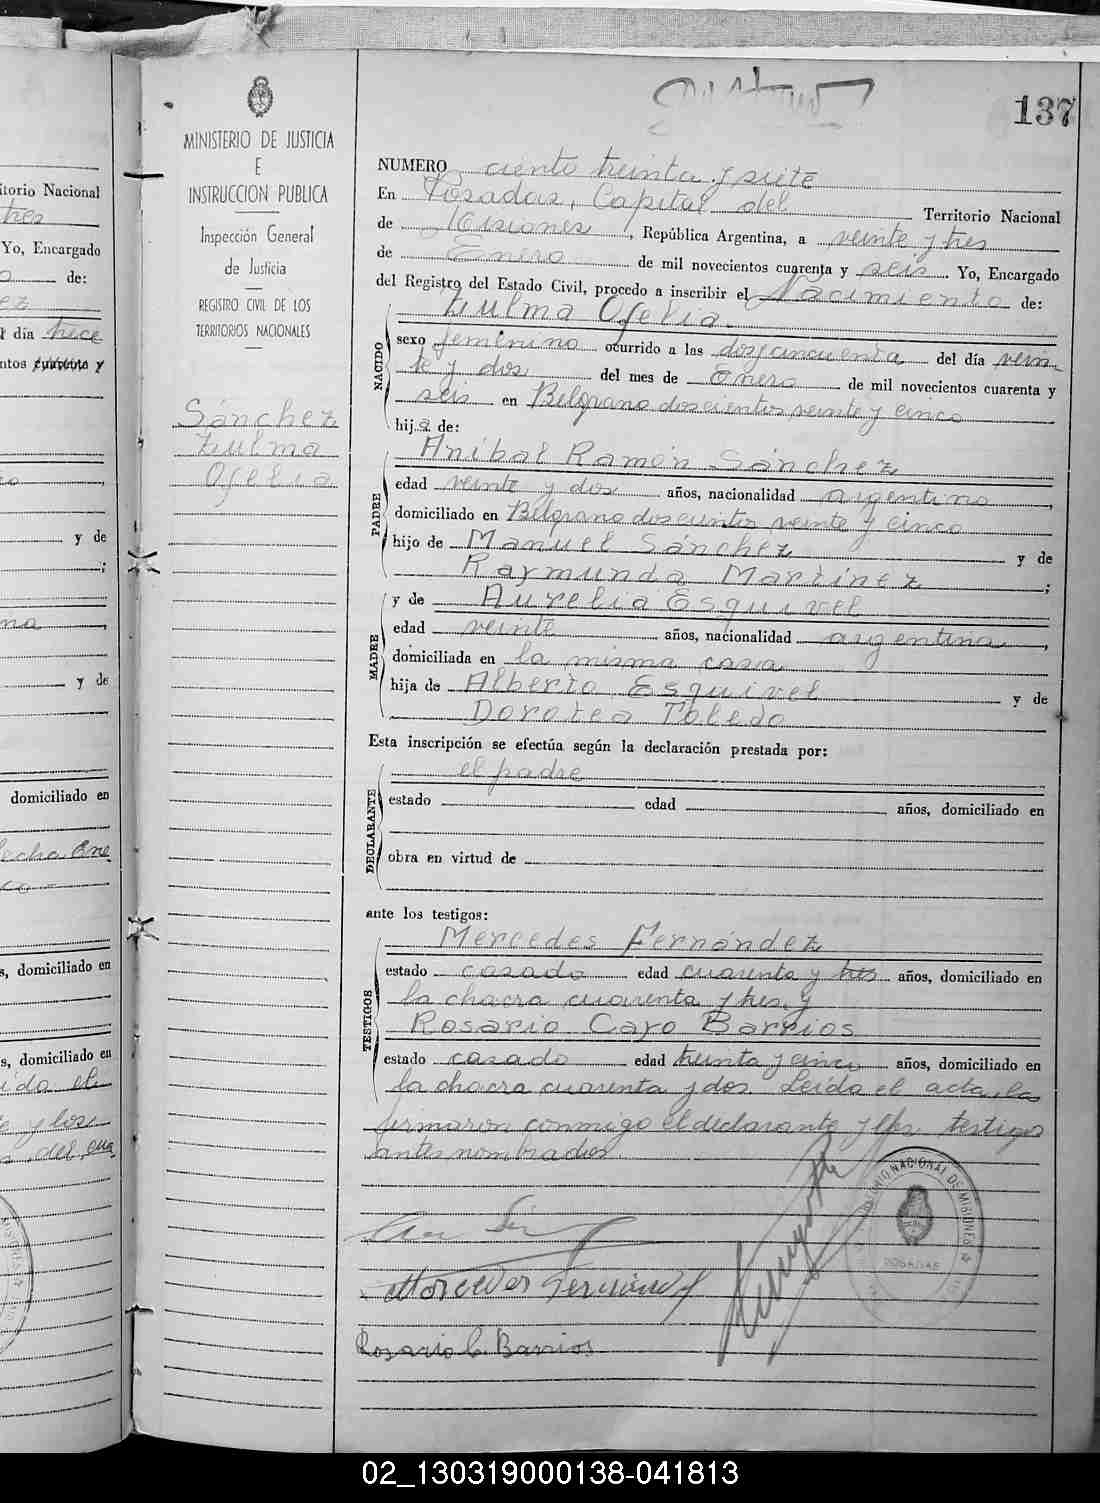 137
MINISTERIO DE JUSTICIA
E
INSTRUCCION PUBLICA
Inspección General
de Justicia
REGISTRO CIVIL DE LOS
TERRITORIOS NACIONALES
Sánchez
Zulma
Ofelia
NUMERO ciento treinta y siete
En Posadas, Capital del Territorio Nacional
de Misiones, República Argentina, a veinte y tres
de Enero de mil novecientos cuarenta y seis. Yo, Encargado
del Registro del Estado Civil, procedo a inscribir el Nacimiento de:
NACIDO
Zulma Ofelia.
sexo femenino ocurrido a las dos y cincuenta del día vein-
te y dos del mes de Enero de mil novecientos cuarenta y
seis en Belgrano doscientos veinte y cinco
hija de:
PADRE
Aníbal Ramón Sánchez
edad veinte y dos años, nacionalidad argentino,
domiciliado en Belgrano doscientos veinte y cinco
hijo de Manuel Sánchez y de
Raymunda Martínez;
MADRE
y de Aurelia Esquivel
edad veinte años, nacionalidad argentina,
domiciliada en la misma casa
hija de Alberto Esquivel y de
Dorotea Toledo
Esta inscripción se efectúa según la declaración prestada por:
DECLARANTE
el padre
estado edad años, domiciliado en
obra en virtud de
ante los testigos:
TESTIGOS
Mercedes Fernández
estado casado edad cuarenta y tres años, domiciliado en
la chacra cuarenta y tres y
Rosario Cayo Barrios
estado casado edad treinta y cinco años, domiciliado en
la chacra cuarenta y dos. Leída el acta, la
firmaron conmigo el declarante y los testigos
antes nombrados.
Mercedes Fernández
Rosario C. Barrios
POSADAS
itorio Nacional
tres
Yo, Encargado
de:
ez
l día trece
ntos cuarenta y
y de
na
y de
domiciliado en
fecha Ene
s, domiciliado en
s, domiciliado en
ida el
y los
del cua
02_130319000138-041813